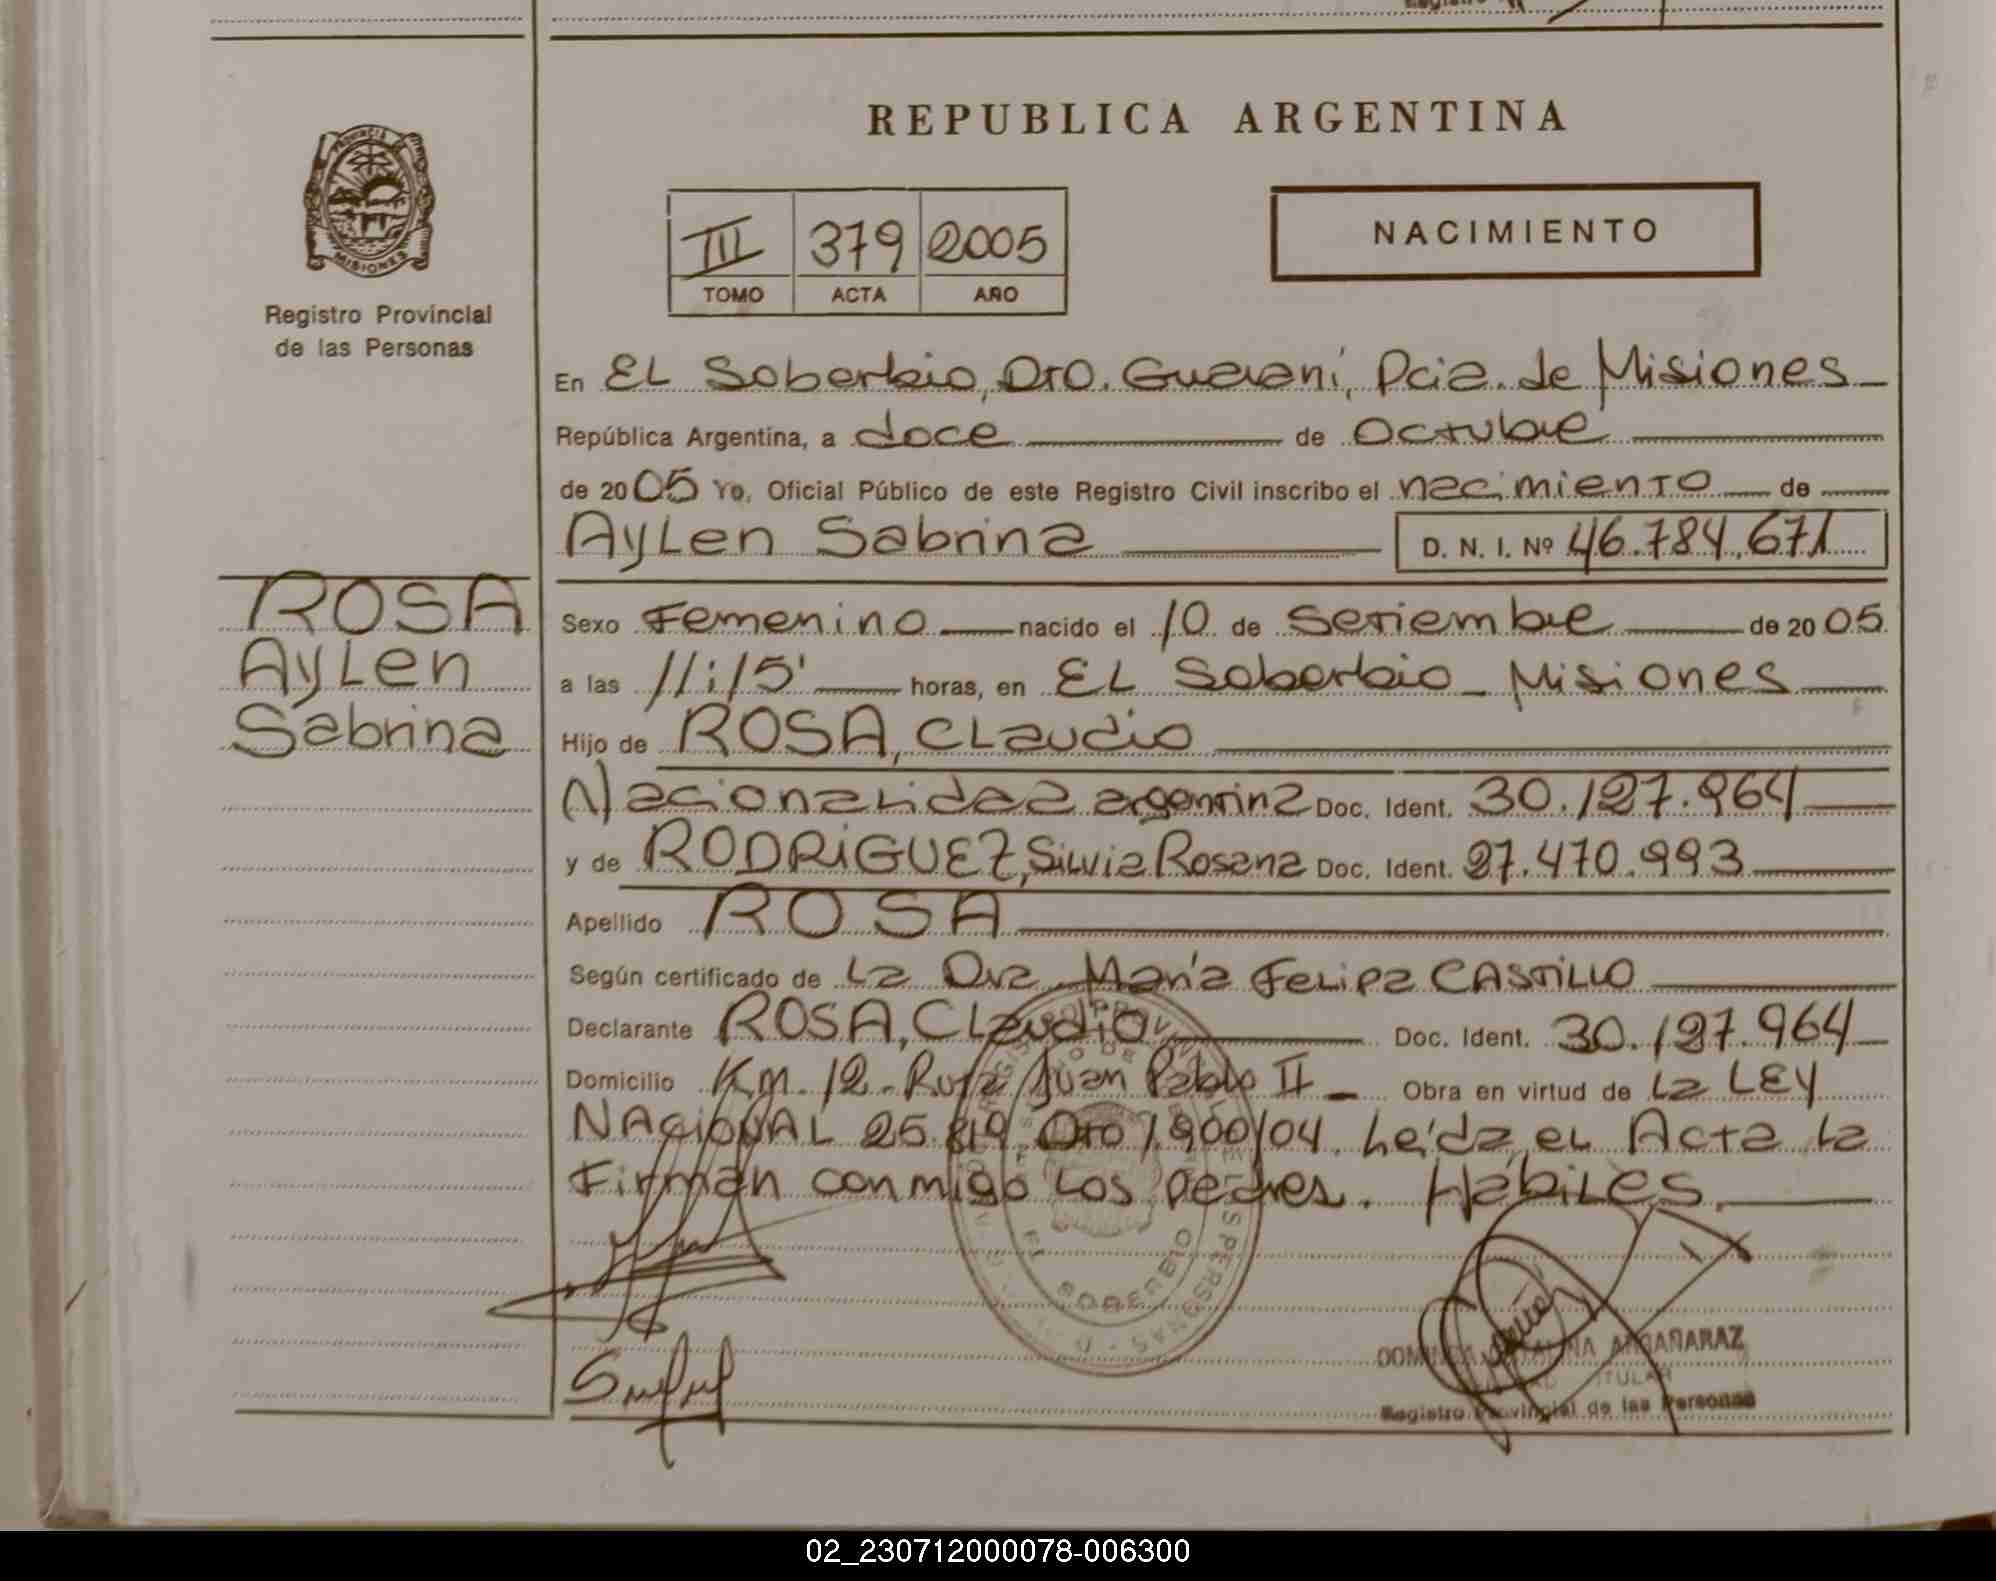 REPUBLICA ARGENTINA
PROVINCIA DE
MISIONES
Registro Provincial
de las Personas
III 379 2005
TOMO ACTA AÑO
NACIMIENTO
En EL Soberbio, Dto. Guarani, Pcia. de Misiones
República Argentina, a doce de Octubre
de 2005 Yo, Oficial Público de este Registro Civil inscribo el nacimiento de
Aylen Sabrina D. N. I. Nº 46.784.671
ROSA
Aylen
Sabrina
Sexo Femenino nacido el 10 de Setiembre de 2005
a las 11:15' horas, en EL Soberbio - Misiones
Hijo de ROSA, Claudio
Nacionalidad argentina Doc. Ident. 30.127.964
y de RODRIGUEZ, Silvia Rosana Doc. Ident. 27.470.993
Apellido ROSA
Según certificado de La Dra. María Felipa CASTILLO
Declarante ROSA, Claudio Doc. Ident. 30.127.964
Domicilio Km. 12 - Ruta Juan Pablo II - Obra en virtud de La LEY
NACIONAL 25.819 Dto 1.900/04. Leída el Acta la
Firman conmigo Los padres. Hábiles.
EL SOBERBIO
ARGAÑARAZ
TITULAR
Registro Provincial de las Personas
02_230712000078-006300